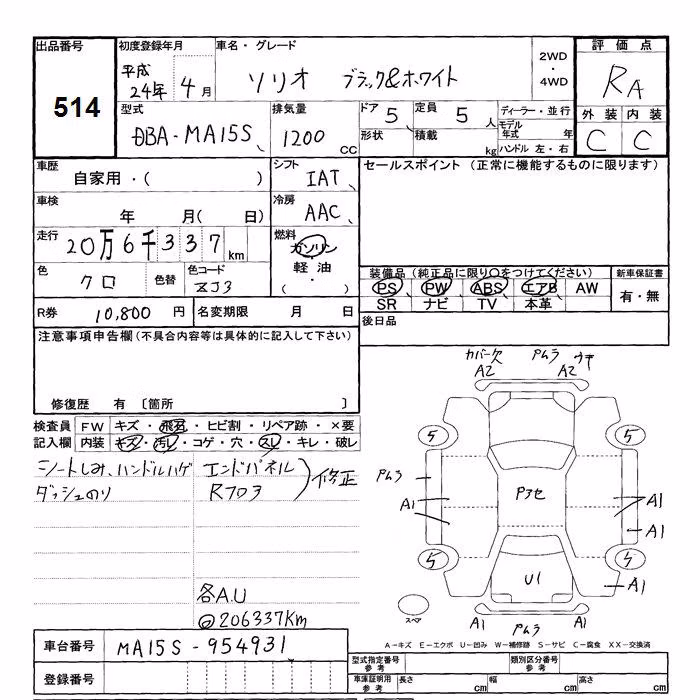 出品番号 初度登録年月 車名・グレード 評価点
514
平成 24年 4月 ソリオ ブラック&ホワイト 2WD・4WD RA
型式 排気量 ドア 5 定員 5人 ディーラー・並行 外装 内装
DBA-MA15S 1200 CC 形状 積載 kg モデル年式 年 C C
ハンドル 左・右
車歴 シフト セールスポイント (正常に機能するものに限ります)
自家用・( ) IAT
車検 冷房
年 月( 日) AAC
走行 20万6千337km 燃料
ガソリン・軽油・( )
色 クロ 色替 色コード ZJ3
装備品 (純正品に限り○をつけてください) 新車保証書
PS PW ABS エアB AW 有・無
SR ナビ TV 本革
R券 10,800 円 名変期限 月 日 後日品
注意事項申告欄 (不具合内容等は具体的に記入して下さい)
修復歴 有 〔箇所 〕
検査員 FW キズ・飛石・ヒビ割・リペア跡・×要
記入欄 内装 キズ・汚レ・コゲ・穴・スレ・キレ・破レ
シートしみ、ハンドルハゲ エンドパネル
ダッシュのり Rフロア 修正
各A.U
@206337Km
カバー欠 Pムラ ウキ
A2 A2
5 5
Pムラ
A1 Pアセ A1
A1
5 5
U1 A1
スペア A1 A1
Pムラ
A-キズ E-エクボ U-凹み W-補修跡 S-サビ C-腐食 XX-交換済
車台番号 MA15S-954931
登録番号
型式指定番号 参考 類別区分番号 参考
車庫証明用 参考 長さ cm 幅 cm 高さ cm